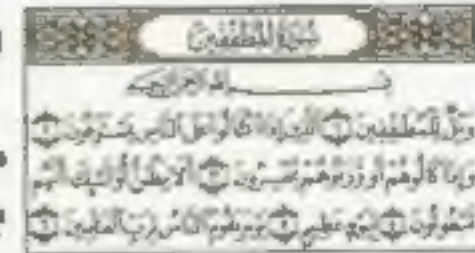 سورة المطففين
بسم الله الرحمن الرحيم
ويل للمطففين ١ الذين إذا اكتالوا على الناس يستوفون ٢
وإذا كالوهم أو وزنوهم يخسرون ٣ ألا يظن أولئك أنهم
مبعوثون ٤ ليوم عظيم ٥ يوم يقوم الناس لرب العالمين ٦